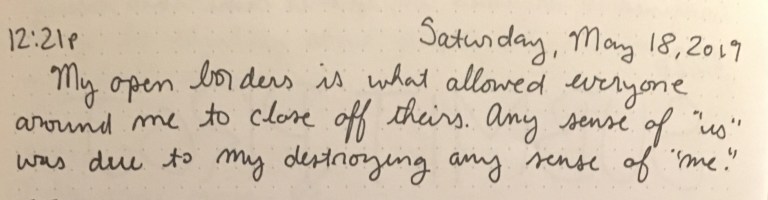 12:21p Saturday, May 18, 2019
My open borders is what allowed everyone
around me to close off theirs. Any sense of "us"
was due to my destroying any sense of "me."